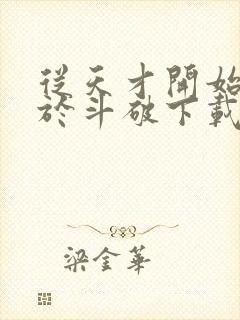 從天才開始
於斗破下載
梁金華